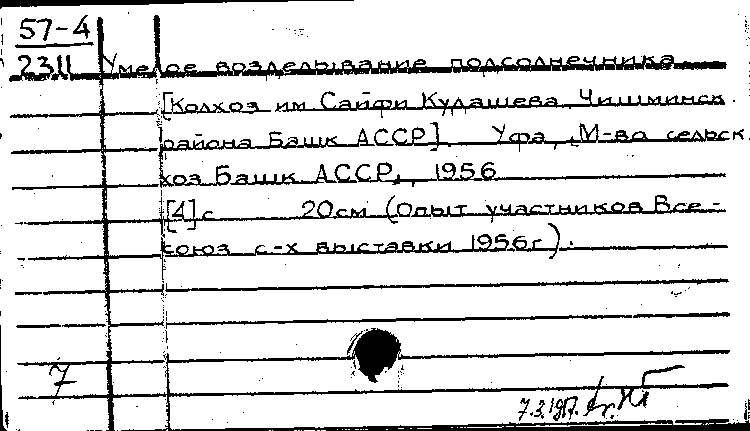 57-4
2311 Умелое возделывание подсолнечника
[Колхоз им Сайфи Кудашева, Чишминск.
района Башк АССР]. Уфа, М-во сельск.
хоз Башк АССР, 1956
[4] с 20см (Опыт участников Все-
союз с-х выставки 1956г).
7